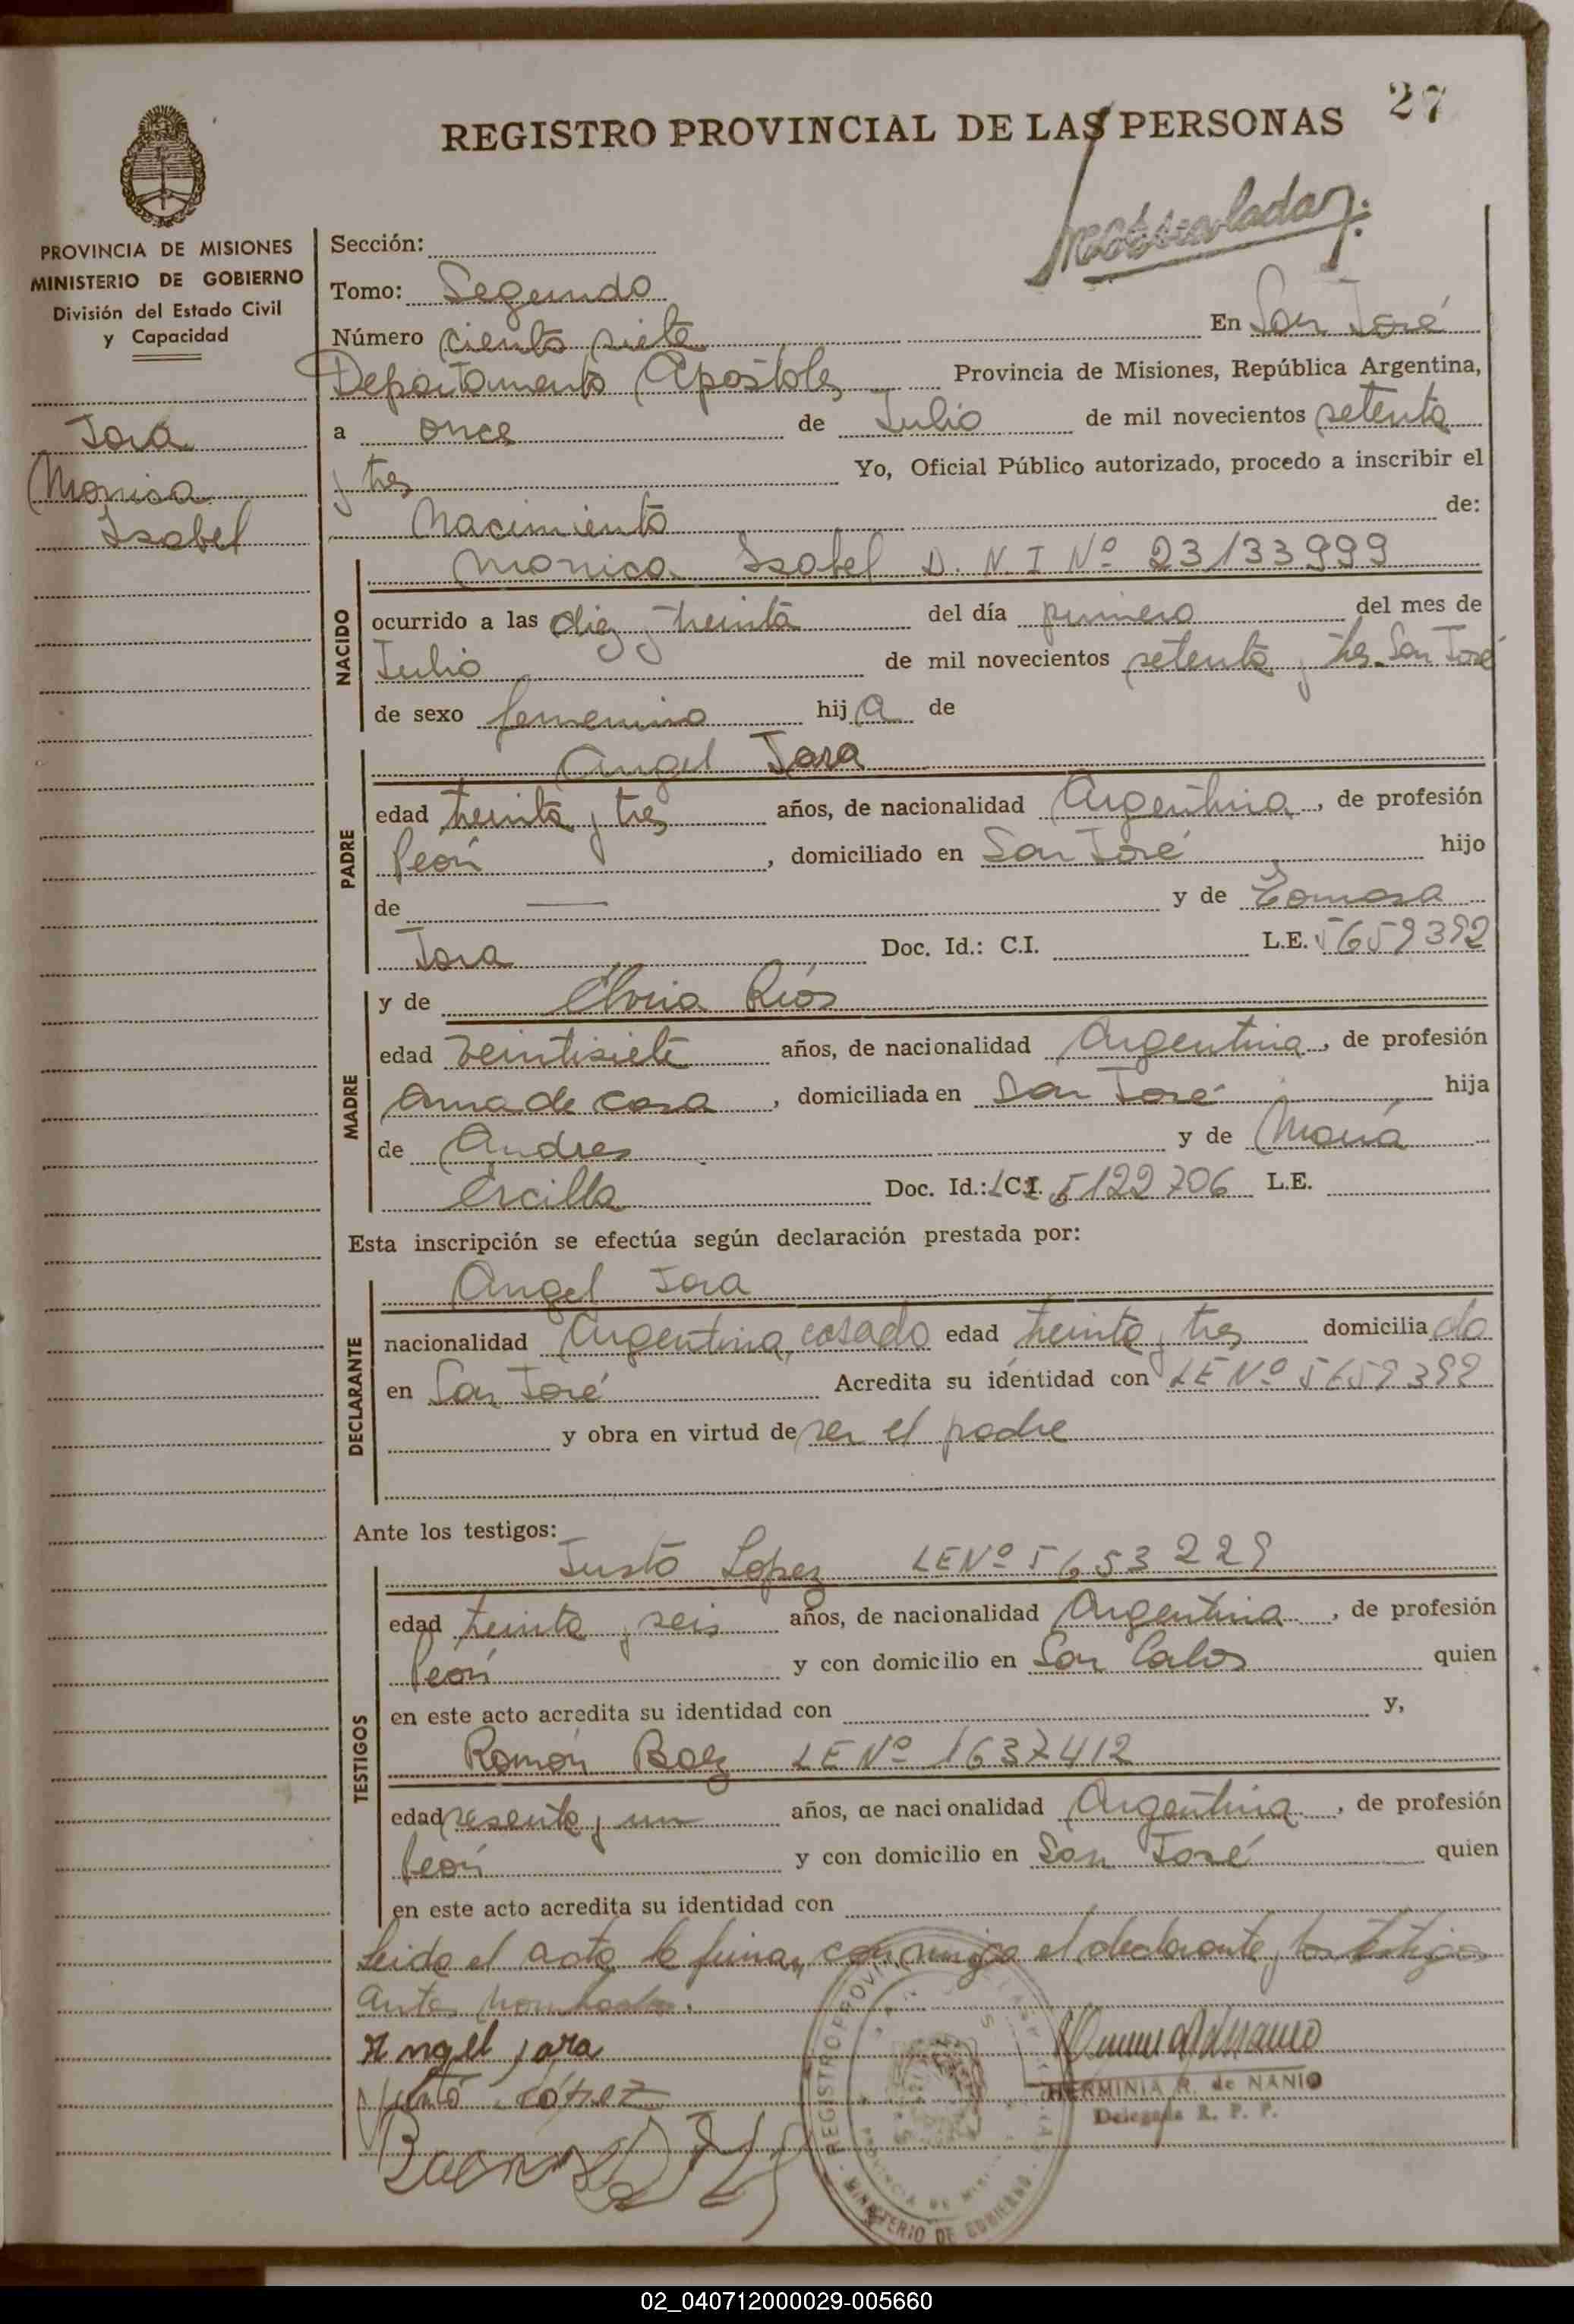 27
REGISTRO PROVINCIAL DE LAS PERSONAS
PROVINCIA DE MISIONES
MINISTERIO DE GOBIERNO
División del Estado Civil
y Capacidad
Jara
Monica
Isabel
Sección:
Tomo: Segundo
Número ciento siete En San José
Departamento Apostoles Provincia de Misiones, República Argentina,
a once de Julio de mil novecientos setenta
y tres Yo, Oficial Público autorizado, procedo a inscribir el
Nacimiento de:
NACIDO
Monica Isabel D. N. I Nº 23133999
ocurrido a las diez y treinta del día primero del mes de
Julio de mil novecientos setenta y tres San José
de sexo femenino hij a de
PADRE
Angel Jara
edad treinta y tres años, de nacionalidad Argentina, de profesión
Peón, domiciliado en San José hijo
de — y de Tomasa
Jara Doc. Id.: C.I. L.E. 5659392
MADRE
y de Elvia Ríos
edad veintisiete años, de nacionalidad Argentina, de profesión
Ama de casa, domiciliada en San José hija
de Andres y de María
Ercilla Doc. Id.: LC. 5122706 L.E.
Esta inscripción se efectúa según declaración prestada por:
DECLARANTE
Angel Jara
nacionalidad Argentina, casado edad treinta y tres domicilia do
en San José Acredita su identidad con LE Nº 5659392
y obra en virtud de ser el padre
Ante los testigos:
TESTIGOS
Justo Lopez LE Nº 5653229
edad treinta y seis años, de nacionalidad Argentina, de profesión
Peón y con domicilio en San Carlos quien
en este acto acredita su identidad con y,
Ramón Baez LE Nº 1637412
edad sesenta y un años, de nacionalidad Argentina, de profesión
Peón y con domicilio en San José quien
en este acto acredita su identidad con
Leida el acta la firman conmigo el declarante y los testigos
antes nombrados.
Angel jara
Justo López
HERMINIA R. de NANIO
Delegada R. P. P.
MINISTERIO DE GOBIERNO
02_040712000029-005660